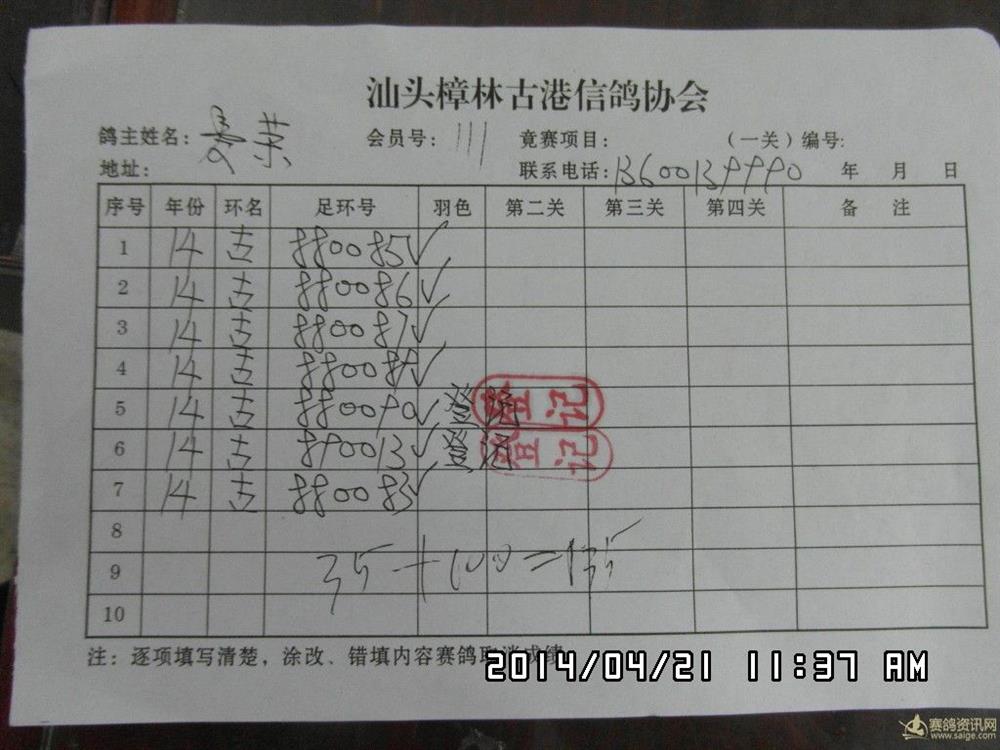 汕头樟林古港信鸽协会
鸽主姓名: 荣 会员号: 111 竟赛项目: (一关) 编号:
地址: 联系电话: 13600139990 年 月 日
序号 年份 环名 足环号 羽色 第二关 第三关 第四关 备 注
1 14 古 880085 ✓
2 14 古 880086 ✓
3 14 古 880087 ✓
4 14 古 ✓
5 14 古 880090 ✓ 登记 登记
6 14 古 890013 ✓ 登记 登记
7 14 古 880083 ✓
8
9 35+100=135
10
注: 逐项填写清楚, 涂改、错填内容赛鸽取消成绩
2014/04/21 11:37 AM
赛鸽资讯网
www.saige.com